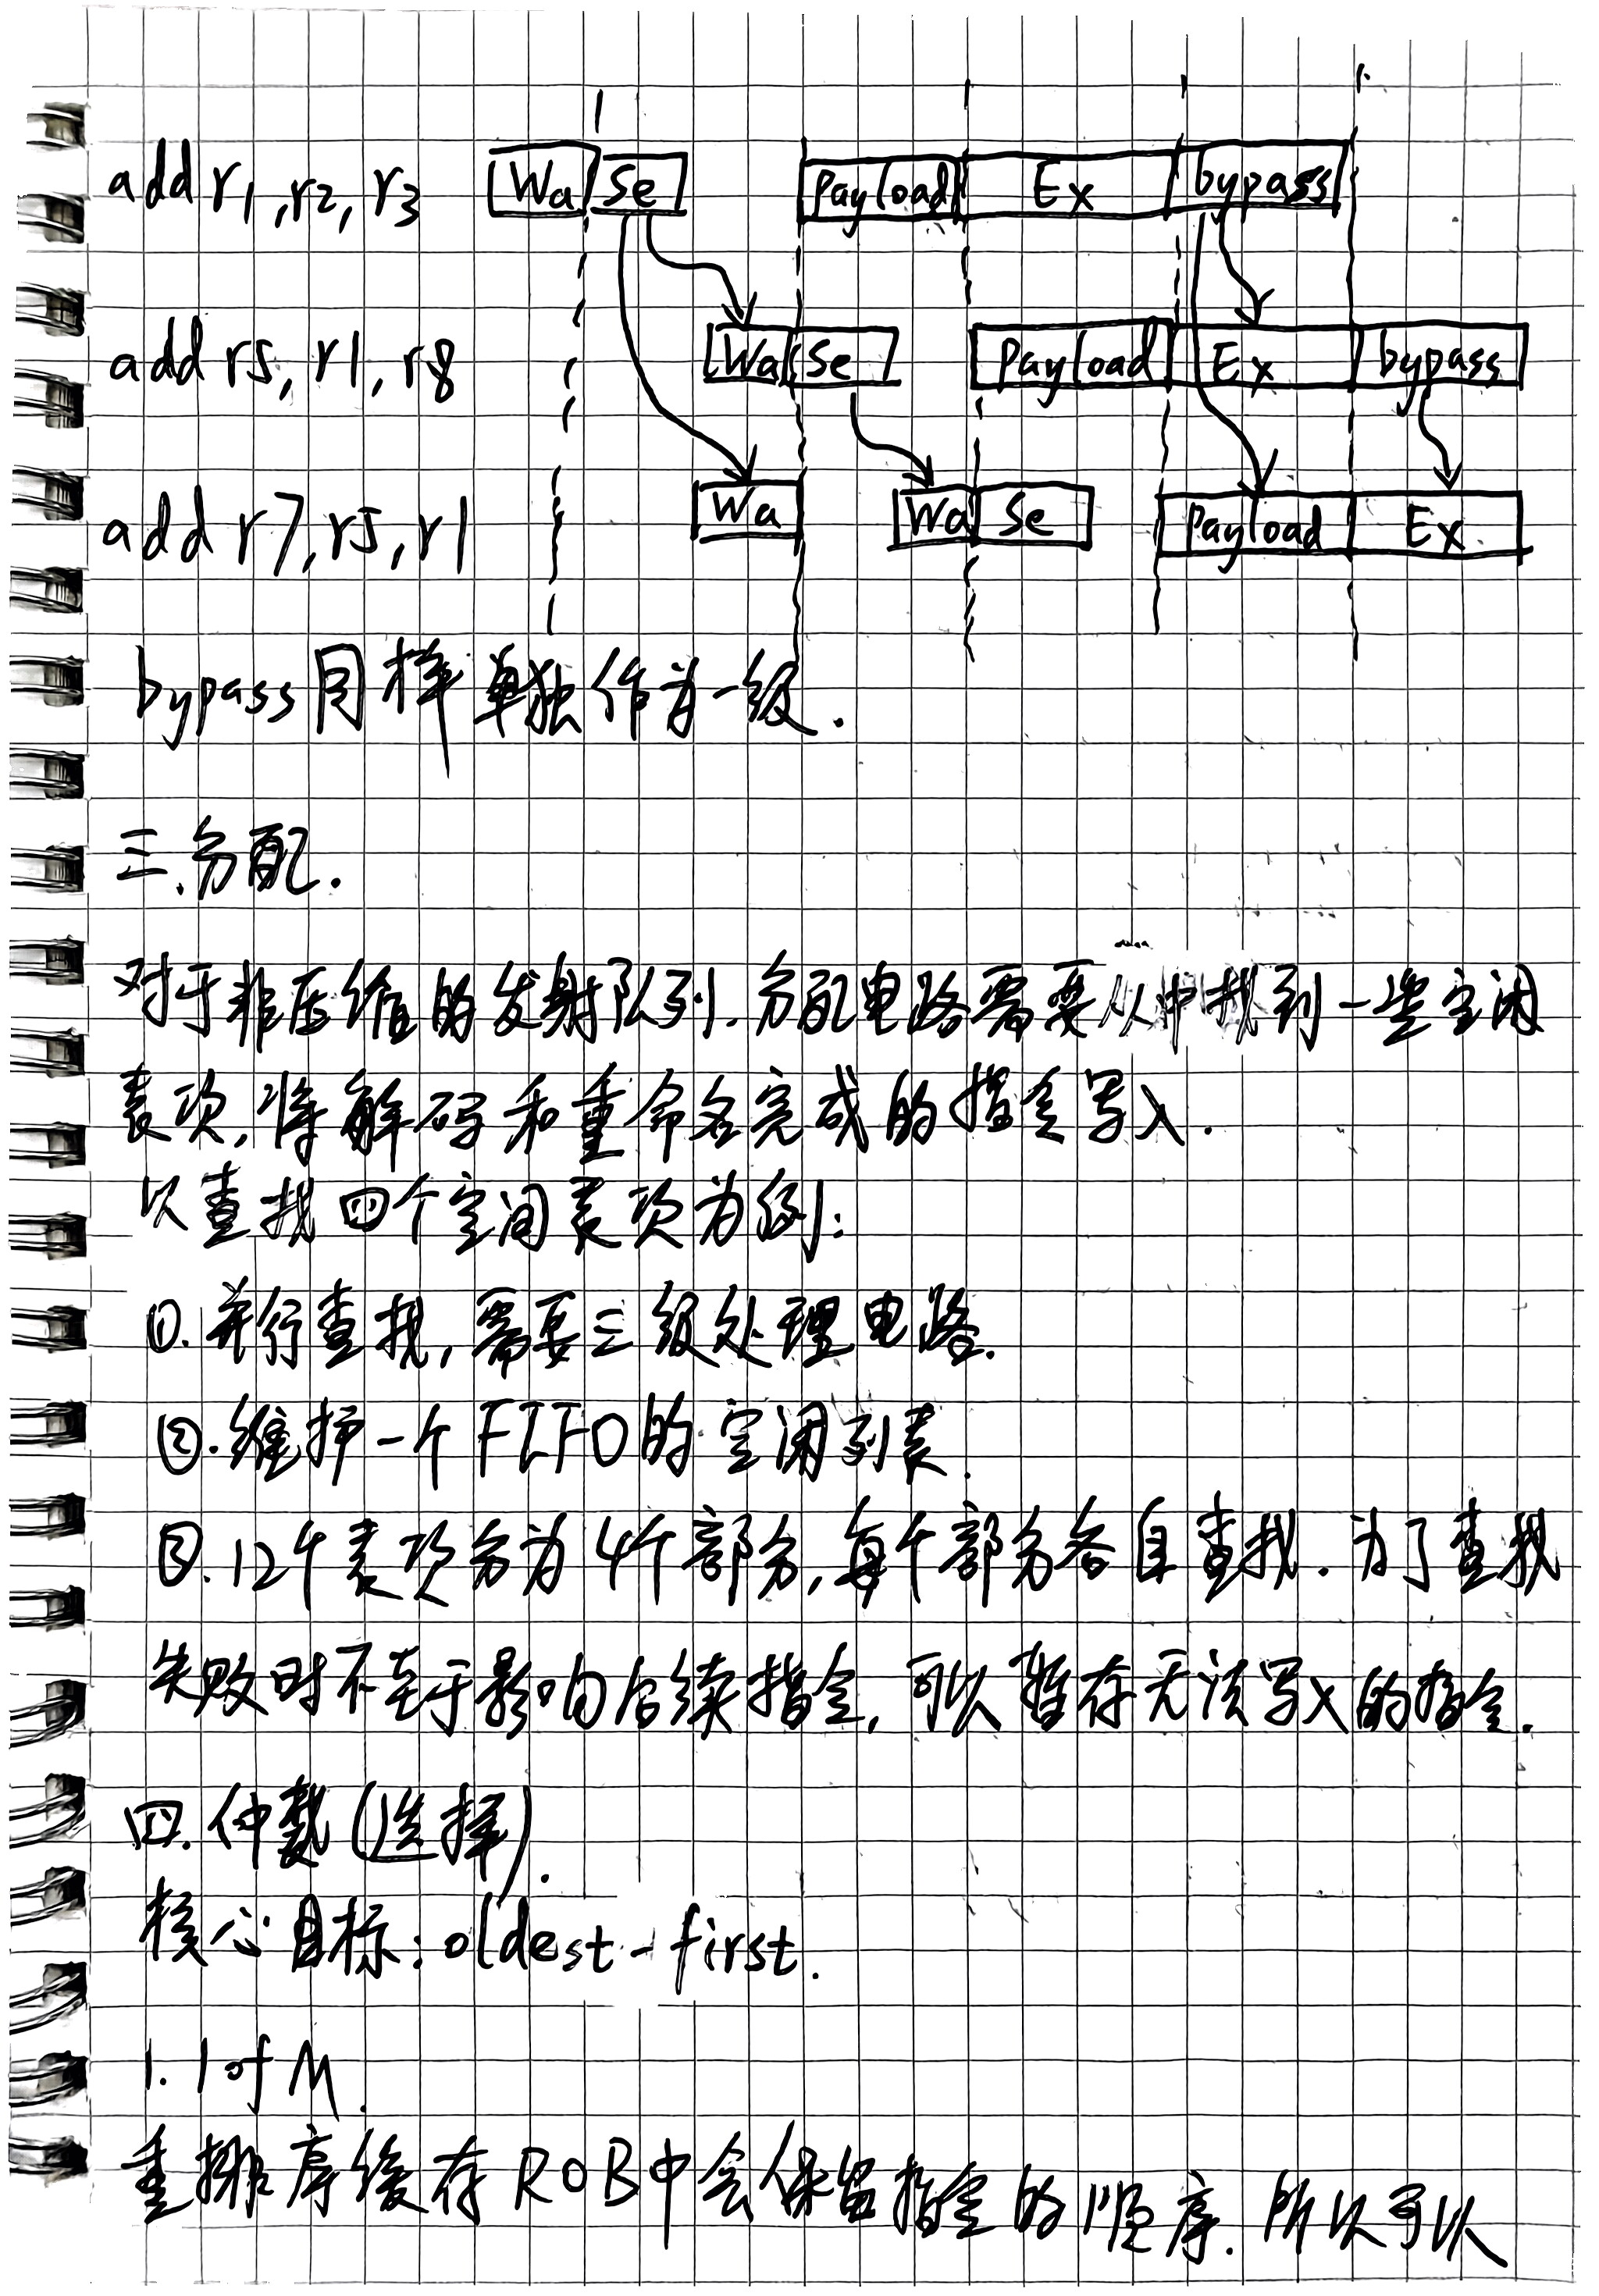 add r1,r2,r3 Wa Se Payload Ex bypass
add r5,r1,r8 Wa Se Payload Ex bypass
add r7,r5,r1 Wa Wa Se Payload Ex
bypass同样单独作为一级.
三.分配.
对于非压缩的发射队列.分配电路需要从中找到一些空闲
表项,将解码和重命名完成的指令写入.
以查找四个空间表项为例:
①.并行查找,需要三级处理电路.
②.维护一个FIFO的空闲列表.
③.12个表项分为4个部分,每个部分各自查找.为了查找
失败时不至于影响后续指令,可以暂存无法写入的指令.
四.仲裁(选择).
核心目标:oldest-first.
1. 1 of M.
重排序缓存ROB中会保留指定的顺序.所以可以